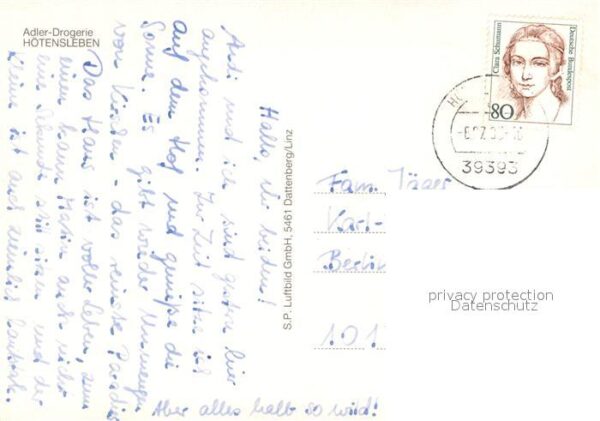 Adler-Drogerie
HÖTENSLEBEN
Hallo, ihr beiden!
Andi und ich sind gestern hier
angekommen. Zur Zeit sitze ich
auf dem Hof und genieße die
Sonne. Es gibt wieder Unmengen
von Kirschen - das reinste Paradies
Das Haus ist voller Leben, zum
einen kann Martin auch nicht
eine Sekunde still sitzen und der
Kleine ist auch ziemlich lautstark.
Aber alles halb so wild!
S.P. Luftbild GmbH, 5461 Dattenberg/Linz
Clara Schumann
Deutsche Bundespost
80
39393
Fam. Jäger
Karl-
Berlin
101
privacy protection
Datenschutz